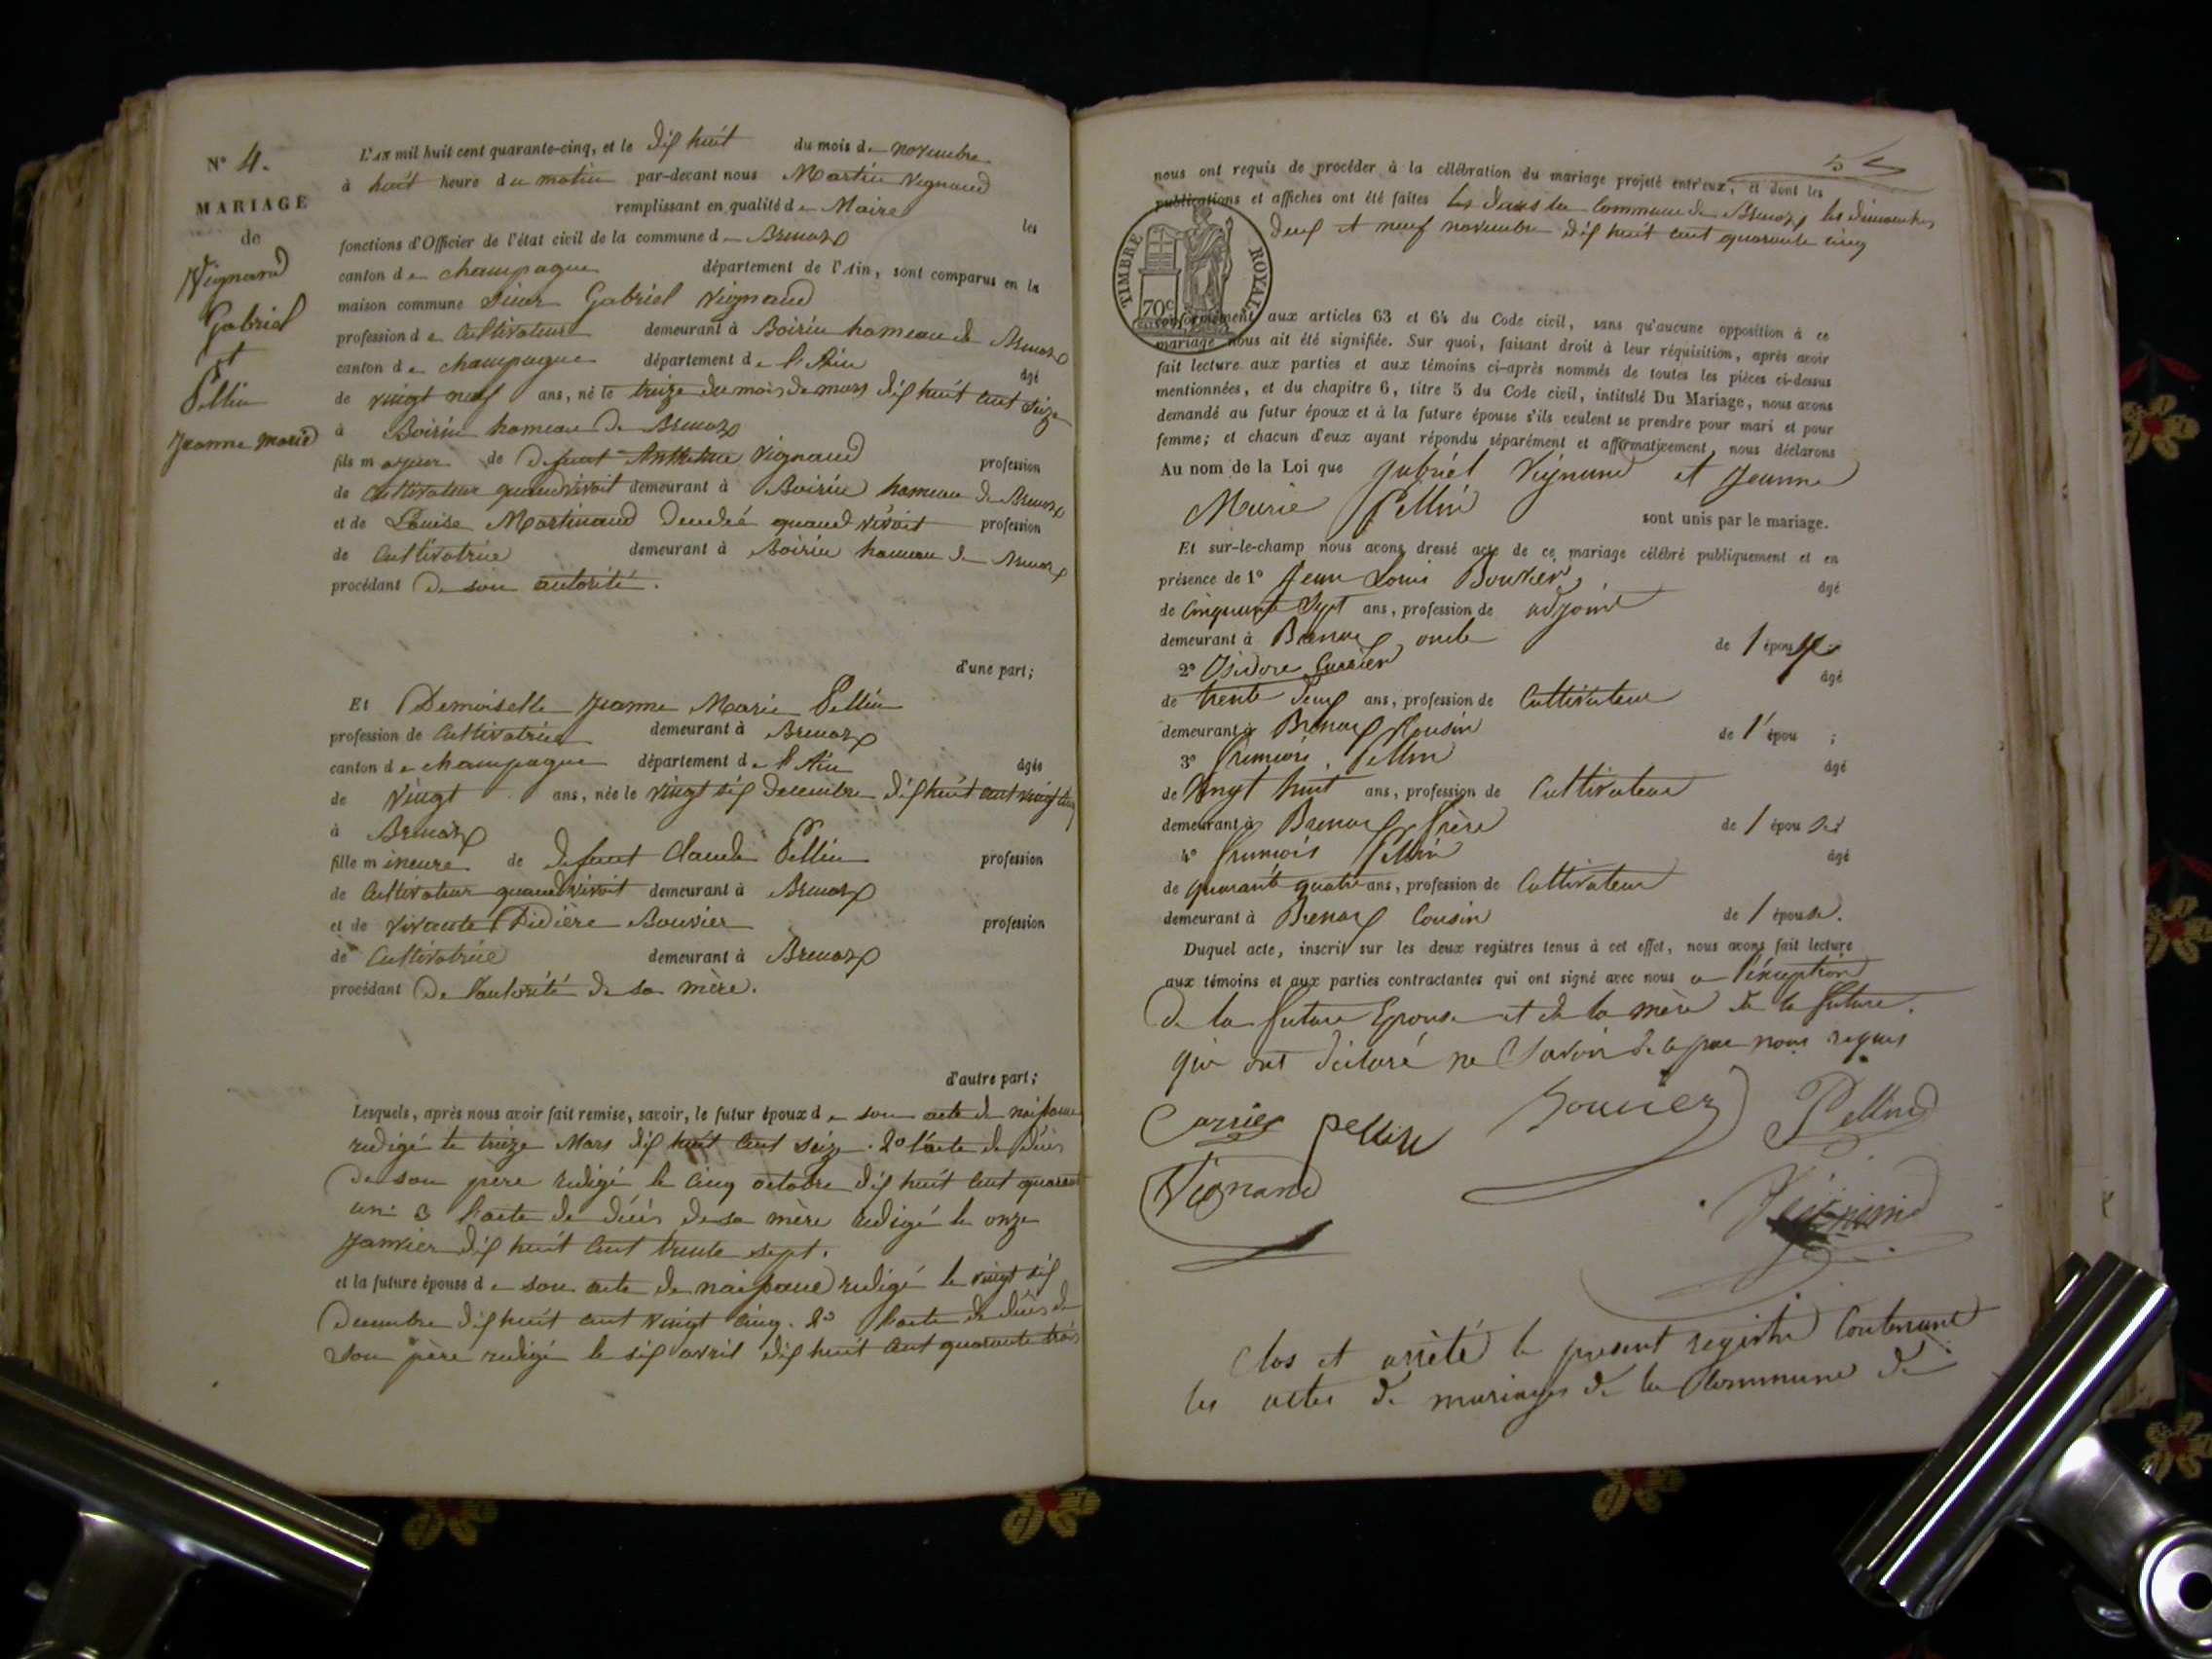 N° 4.
MARIAGE
de
Vignand
Gabriel
et
Pellin
Jeanne marie
L'AN mil huit cent quarante-cinq, et le dix huit du mois de novembre
à huit heure du matin par-devant nous Martin Vignand
remplissant en qualité de Maire les
fonctions d'Officier de l'état civil de la commune de Brenaz
canton de champagne département de l'Ain, sont comparus en la
maison commune sieur Gabriel Vignand
profession de Cultivateur demeurant à Boirin hameau de Brenaz
canton de champagne département de l'Ain âgé
de vingt neuf ans, né le treize du mois de mars dix huit cent seize
à Boirin hameau de Brenaz
fils majeur de défunt Anthelme Vignand profession
de Cultivateur quand vivoit demeurant à Boirin hameau de Brenaz
et de Louise Martinand quand vivoit profession
de Cultivatrice demeurant à Boirin hameau de Brenaz
procédant de son autorité.
d'une part;
Et Demoiselle Jeanne Marie Pellin
profession de Cultivatrice demeurant à Brenaz
canton de champagne département de l'Ain âgée
de vingt ans, née le vingt six decembre dix huit cent vingt cinq
à Brenaz
fille mineure de defunt Claude Pellin profession
de Cultivateur quand vivoit demeurant à Brenaz
et de vivante Didière Bouvier profession
de Cultivatrice demeurant à Brenaz
procédant de l'autorité de sa mère.
d'autre part;
Lesquels, après nous avoir fait remise, savoir, le futur époux de son acte de naissance
redigé le treize Mars dix huit cent seize. 2° l'acte de décès
de son père redigé le cinq octobre dix huit cent quarante
un. 3 l'acte de décès de sa mère redigé le onze
janvier dix huit cent trente sept.
et la future épouse de son acte de naissance redigé le vingt six
decembre dix huit cent vingt cinq. 2° l'acte de décès de
son père redigé le six avril dix huit cent quarante trois
nous ont requis de procéder à la célébration du mariage projeté entr'eux, et dont les
publications et affiches ont été faites les dans la Commune de Brenaz les dimanches
deux et neuf novembre dix huit cent quarante cinq
TIMBRE ROYAL
70c
conformément aux articles 63 et 64 du Code civil, sans qu'aucune opposition à ce
mariage nous ait été signifiée. Sur quoi, faisant droit à leur réquisition, après avoir
fait lecture aux parties et aux témoins ci-après nommés de toutes les pièces ci-dessus
mentionnées, et du chapitre 6, titre 5 du Code civil, intitulé Du Mariage, nous avons
demandé au futur époux et à la future épouse s'ils veulent se prendre pour mari et pour
femme; et chacun d'eux ayant répondu séparément et affirmativement, nous déclarons
Au nom de la Loi que gabriel Vignand et Jeanne
Marie Pellin sont unis par le mariage.
Et sur-le-champ nous avons dressé acte de ce mariage célébré publiquement et en
présence de 1° Jean Louis Bouvier, âgé
de Cinquante Sept ans, profession de adjoint
demeurant à Brenaz oncle de l épouse
2° Isidore Carrier âgé
de trente deux ans, profession de Cultivateur
demeurant à Brenaz Cousin de l'épou ;
3° francois Pellin âgé
de Vingt huit ans, profession de Cultivateur
demeurant à Brenaz frère de l épouse
4° francois Pellin âgé
de quarante quatre ans, profession de Cultivateur
demeurant à Brenaz Cousin de l épouse.
Duquel acte, inscrit sur les deux registres tenus à cet effet, nous avons fait lecture
aux témoins et aux parties contractantes qui ont signé avec nous a l'exception
de la future Epouse et de la mère de la future.
qui ont déclaré ne Savoir de ce par nous requis
Carrier pellin Bouvier Pellin
Vignand Vignand
Clos et arrêté le present registre Contenant
les actes de mariages de la Commune de